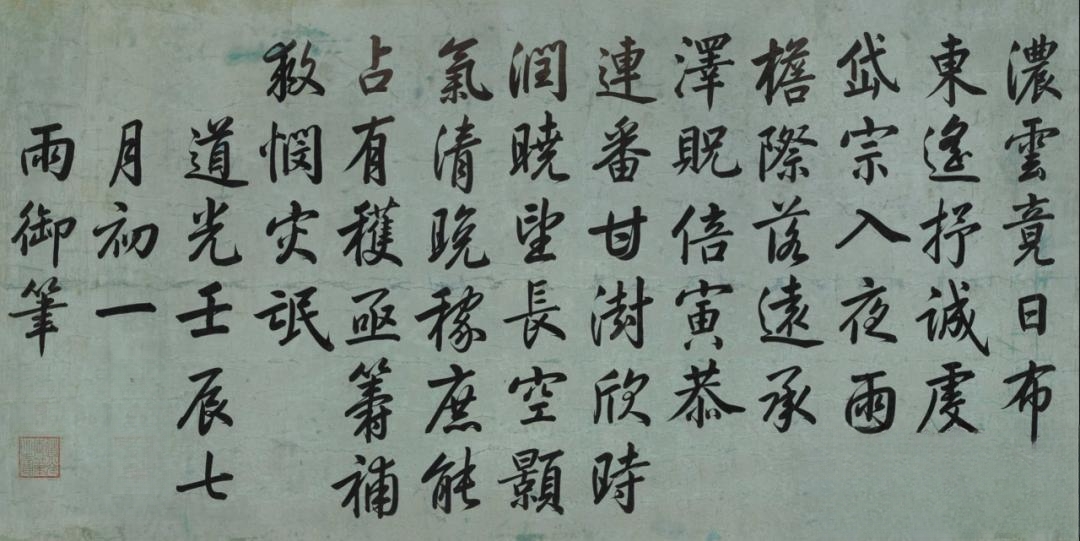 濃雲竟日布
東遙抒誠虔
岱宗入夜雨
檐際落遠承
澤貺倍寅恭
連番甘澍欣時
潤曉望長空顥
氣清晚稼庶能
占有穫亟籌補
救憫灾氓
道光壬辰七
月初一
雨御筆